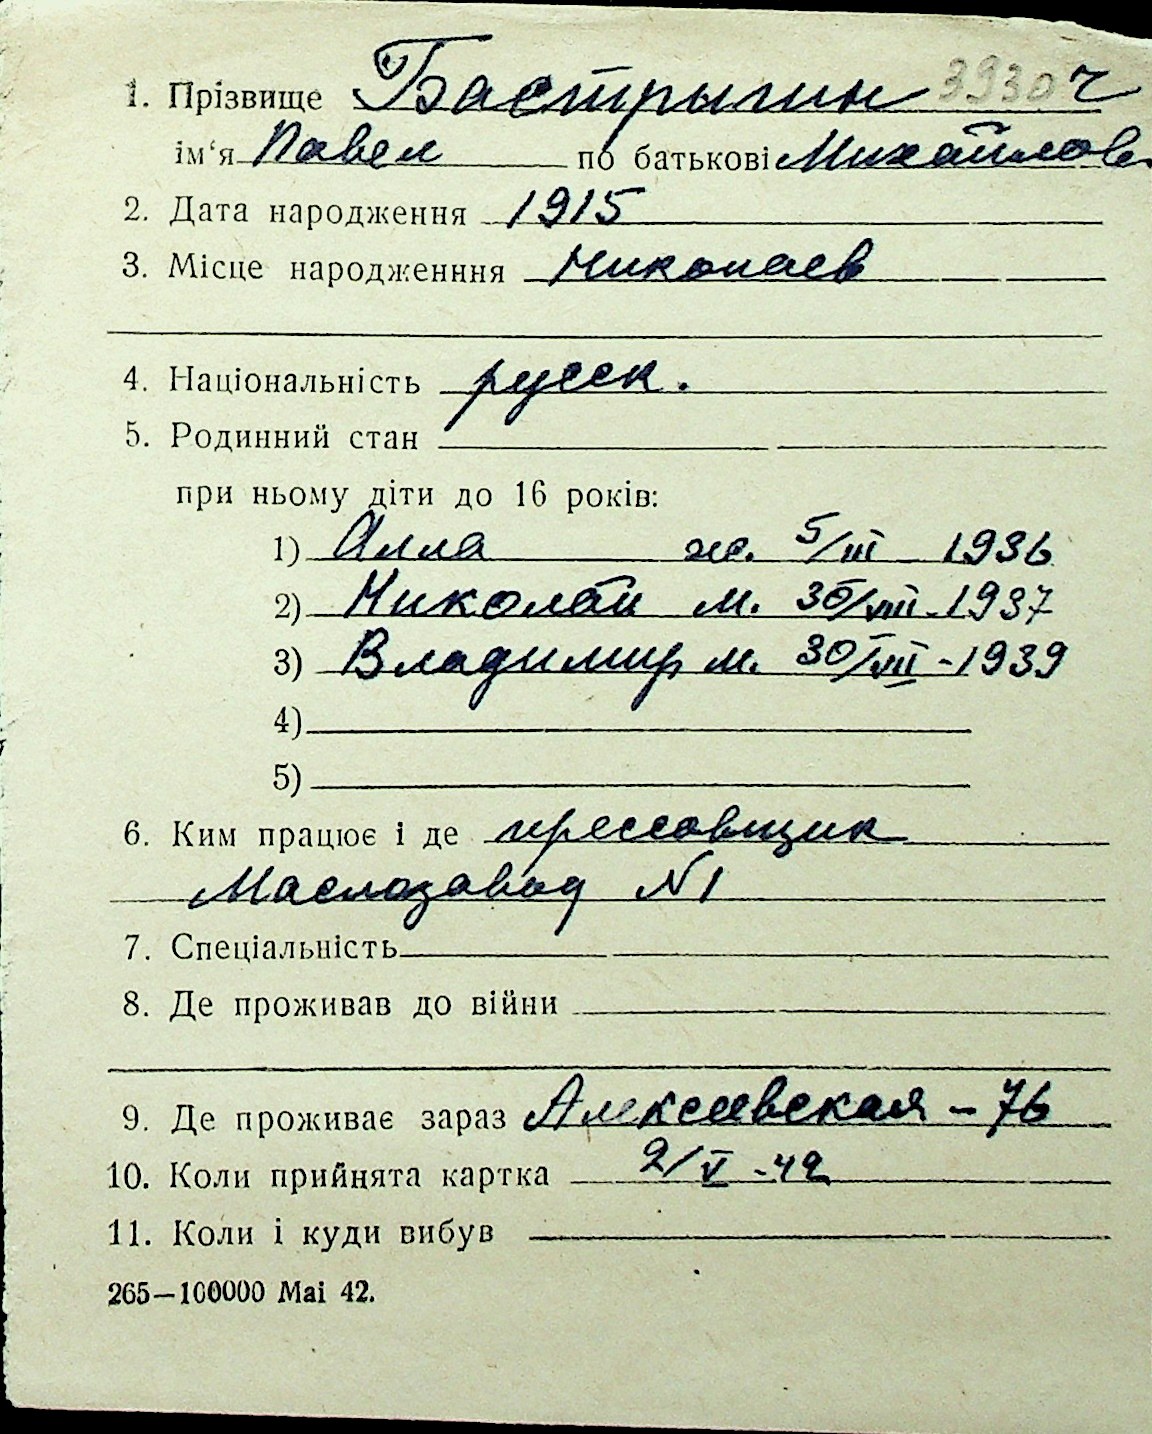 1. Прізвище Бастрыгин 3930 ч
ім‘я Павел по батькові Михайлов
2. Дата народження 1915
3. Місце народженння Николаев
4. Національність русск.
5. Родинний стан
при ньому діти до 16 років:
1) Алла ж. 5/III 1936
2) Николай м. 30/VIII-1937
3) Владимир м. 30/VII-1939
4)
5)
6. Ким працює і де прессовщик
Маслозавод N1
7. Спеціальність
8. Де проживав до війни
9. Де проживає зараз Алексеевская - 76
10. Коли прийнята картка 2/V-42
11. Коли і куди вибув
265—100000 Mai 42.